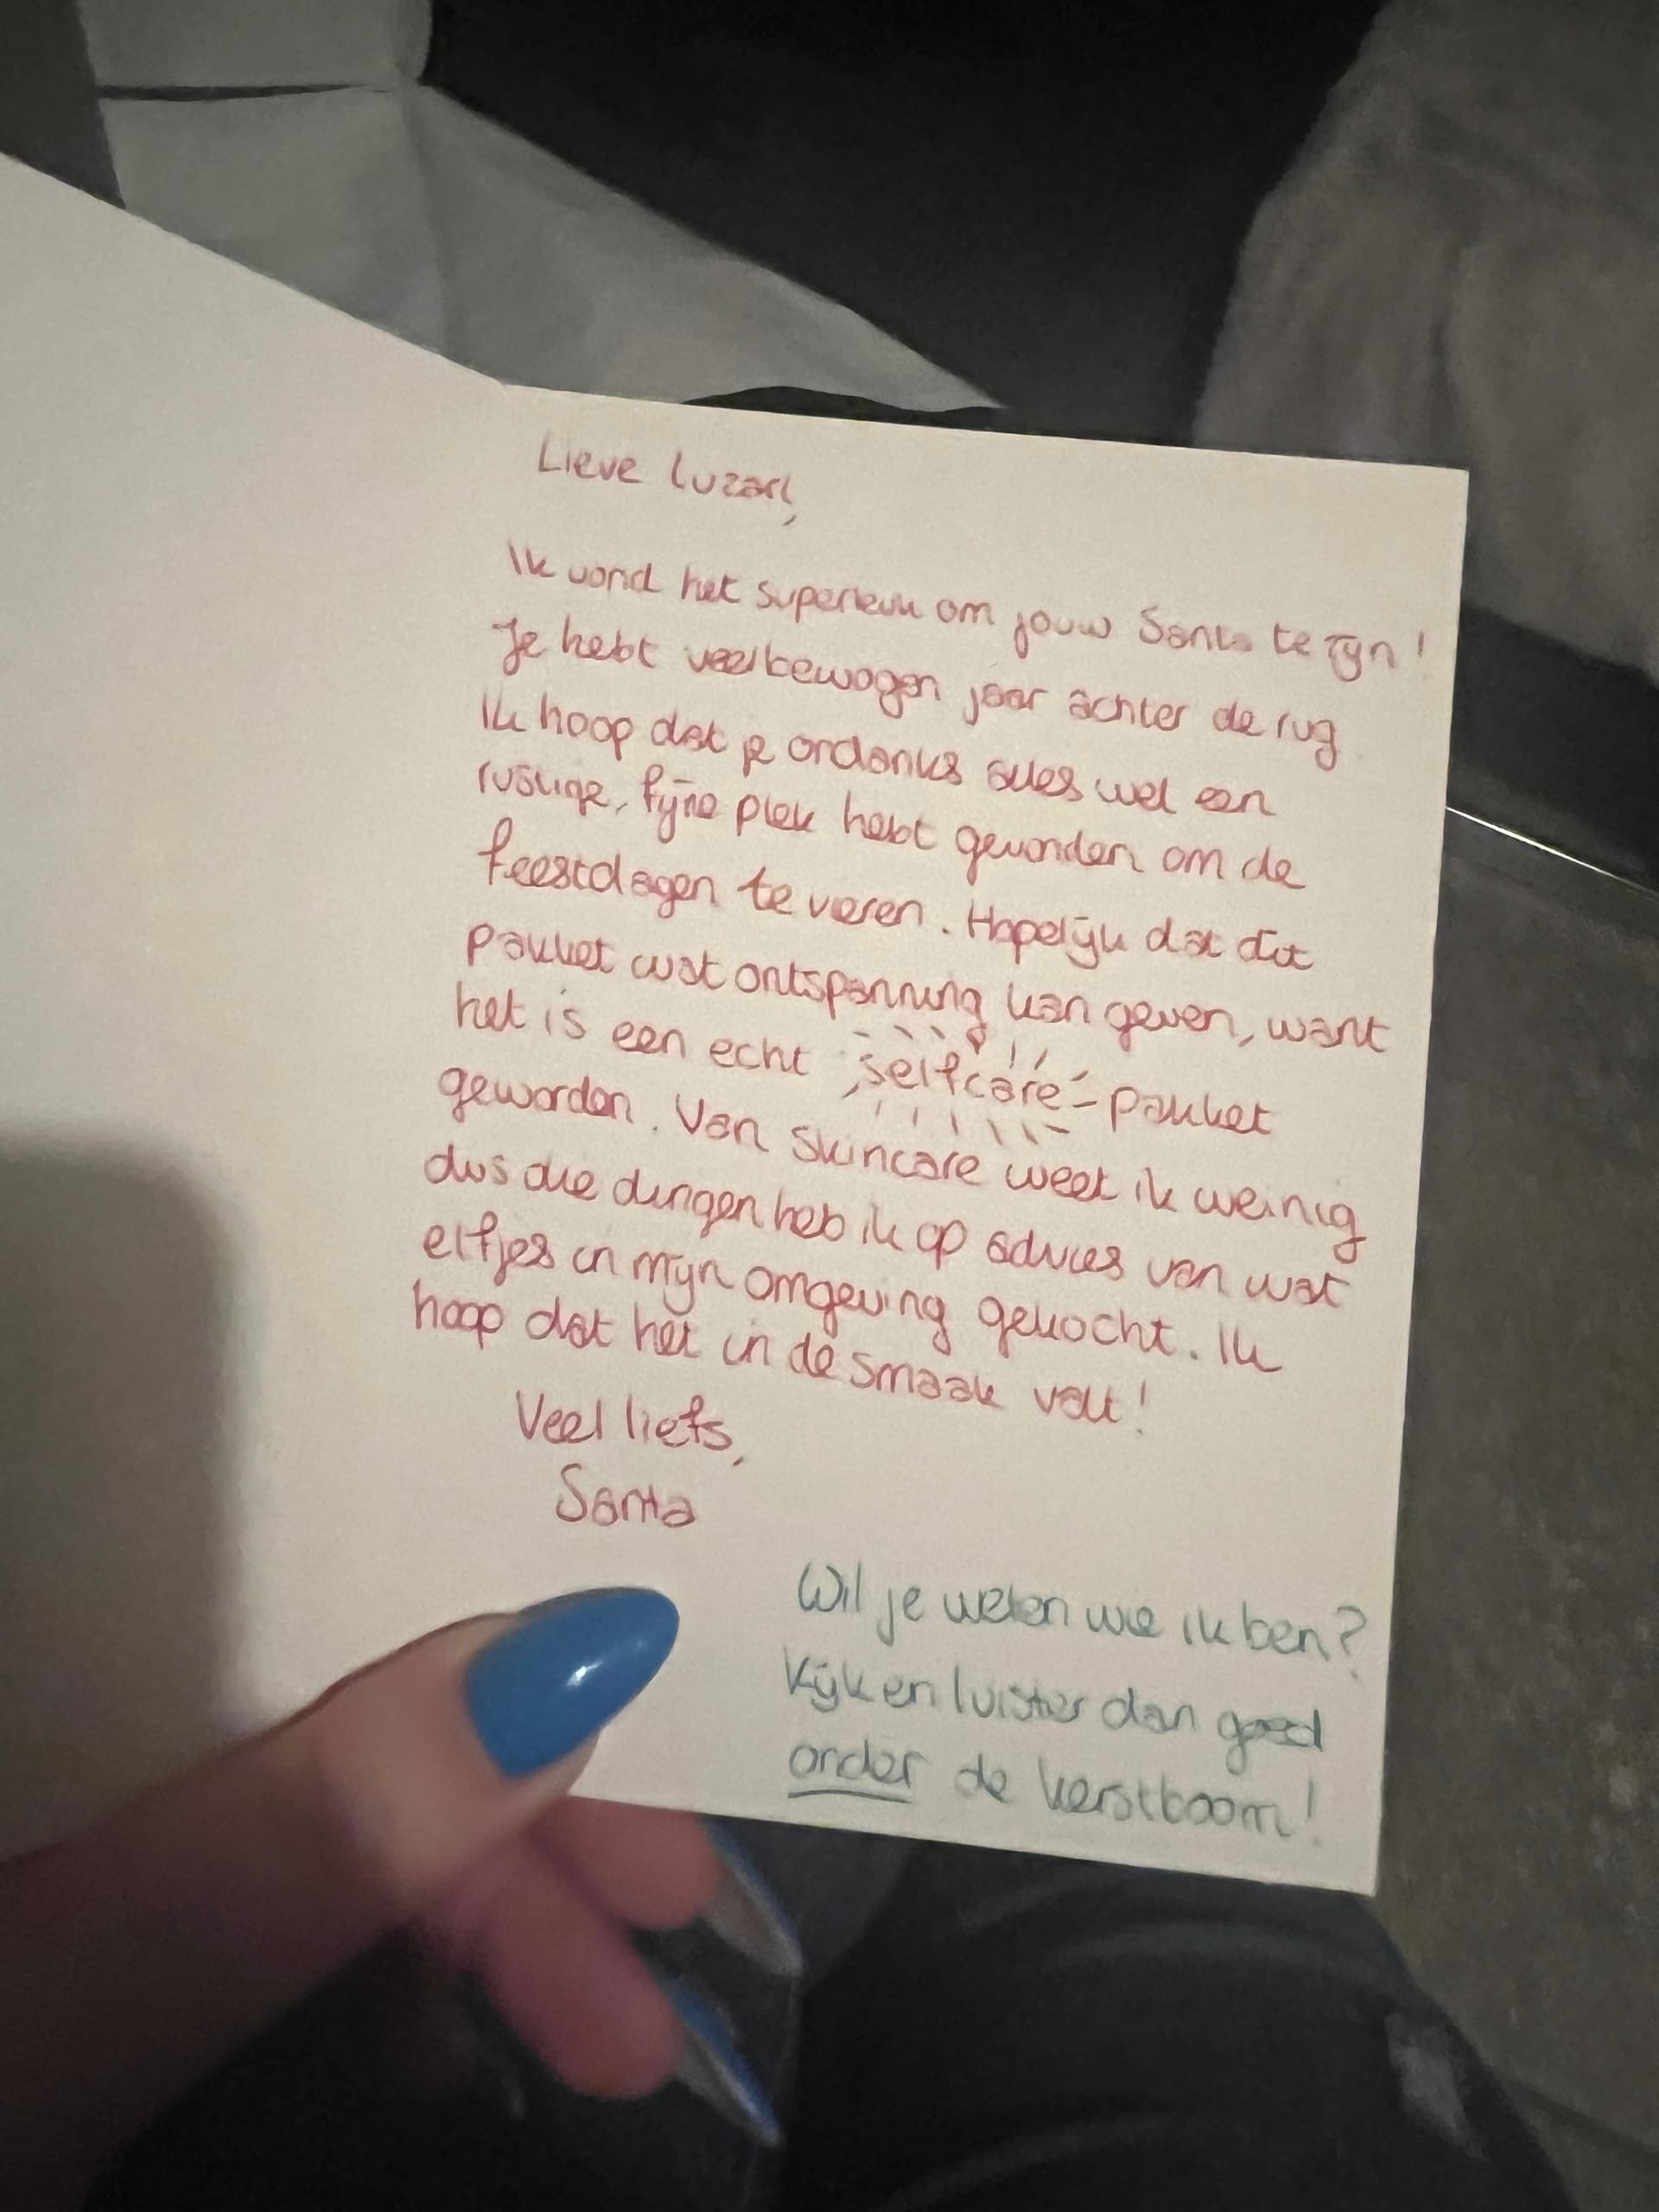 Lieve Luzarl,
Ik vond het superleuk om jouw Santa te zijn!
Je hebt veelbewogen jaar achter de rug
Ik hoop dat je ondanks alles wel een
rustige, fijne plek hebt gevonden om de
feestdagen te vieren. Hopelijk dat dit
pakket wat ontspanning kan geven, want
het is een echt selfcare-pakket
geworden. Van skincare weet ik weinig
dus die dingen heb ik op advies van wat
elfjes in mijn omgeving gekocht. Ik
hoop dat het in de smaak valt!
Veel liefs,
Santa
Wil je weten wie ik ben?
Kijk en luister dan goed
onder de kerstboom!